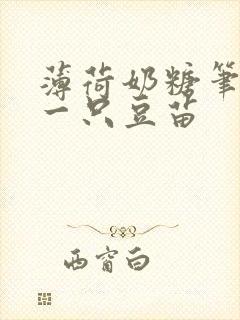 薄荷奶糖笔
一只豆苗
西窗白